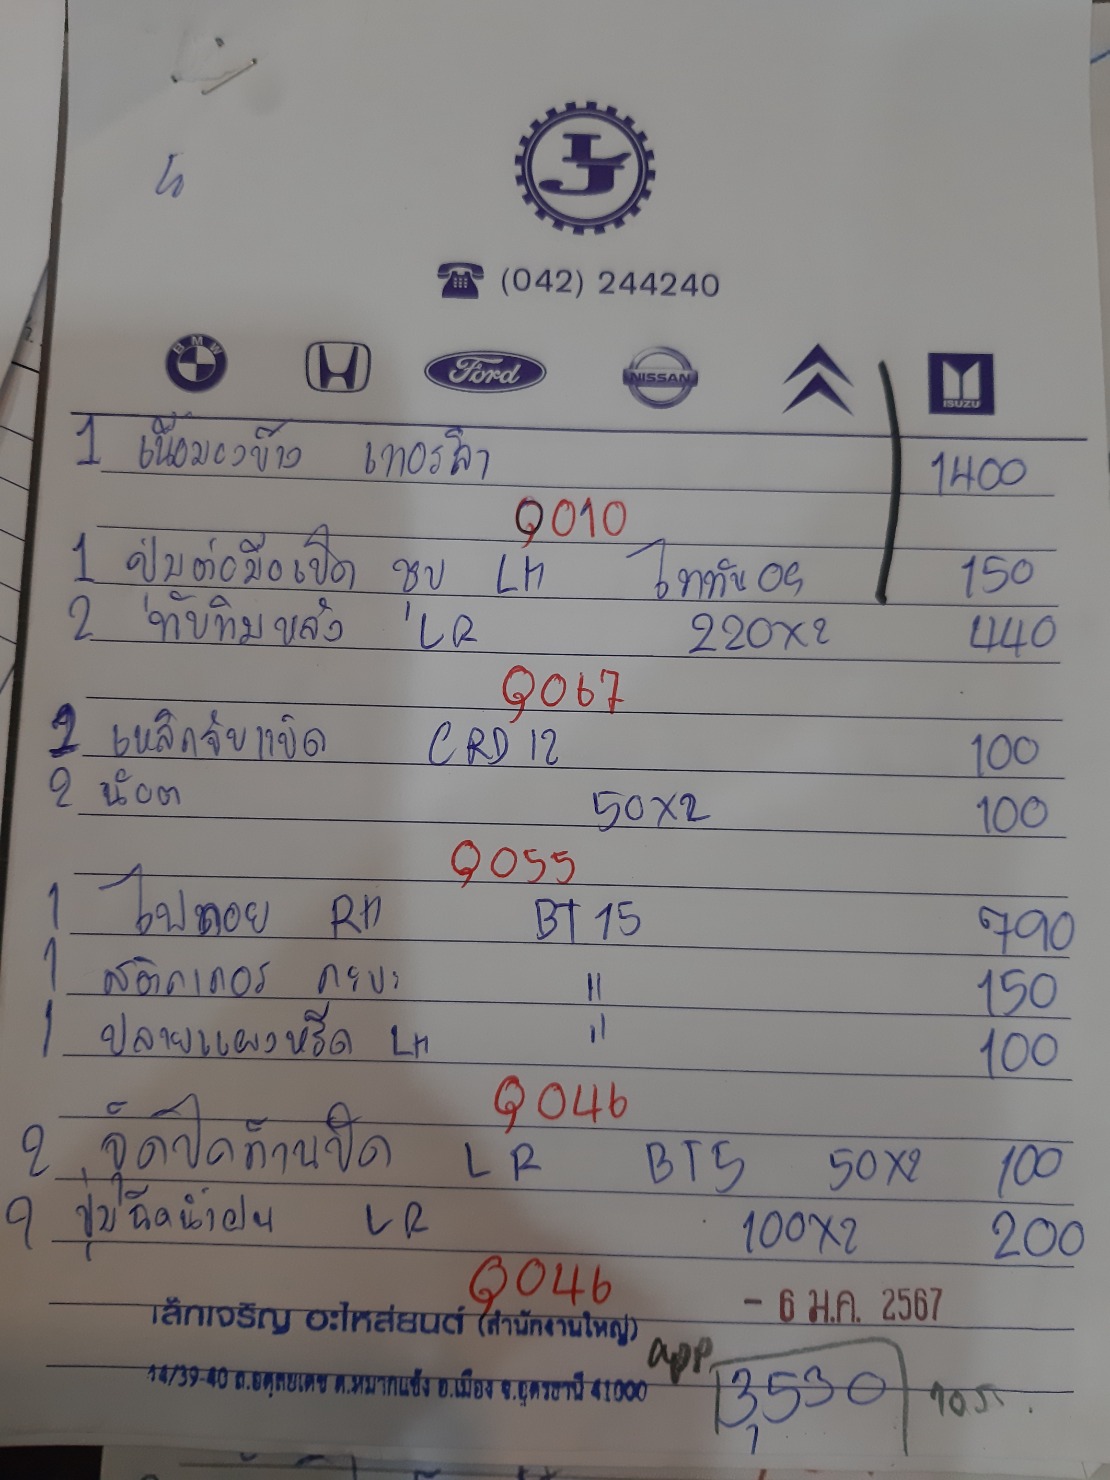 (042) 244240
BMW Ford NISSAN ISUZU
1 เนื้อมองข้าง เทอร์ล่า 1400
Q010
1 ปุ่มต่อมือเปิด ชบ LH ไททัน 150
2 ทับทิมหลัง LR 220x2 440
Q067
2 เหล็กจับแบ็ต CRD 12 100
2 น๊อต 50x2 100
Q055
1 ไฟตอย RH BT 15 790
1 สติกเกอร์ กะบะ " 150
1 ปลายแผงหรีด LH " 100
Q046
2 จุ๊ดปิดก้านปัด LR BT5 50x2 100
2 ปุ่มฉีดน้ำฝน LR 100x2 200
Q046
เล้กเจริญ อะไหล่ยนต์ (สำนักงานใหญ่)
- 6 ม.ค. 2567
14/39-40 ถ.อดุลยเดช ต.หมากแข้ง อ.เมือง จ.อุดรธานี 41000
app 3,530